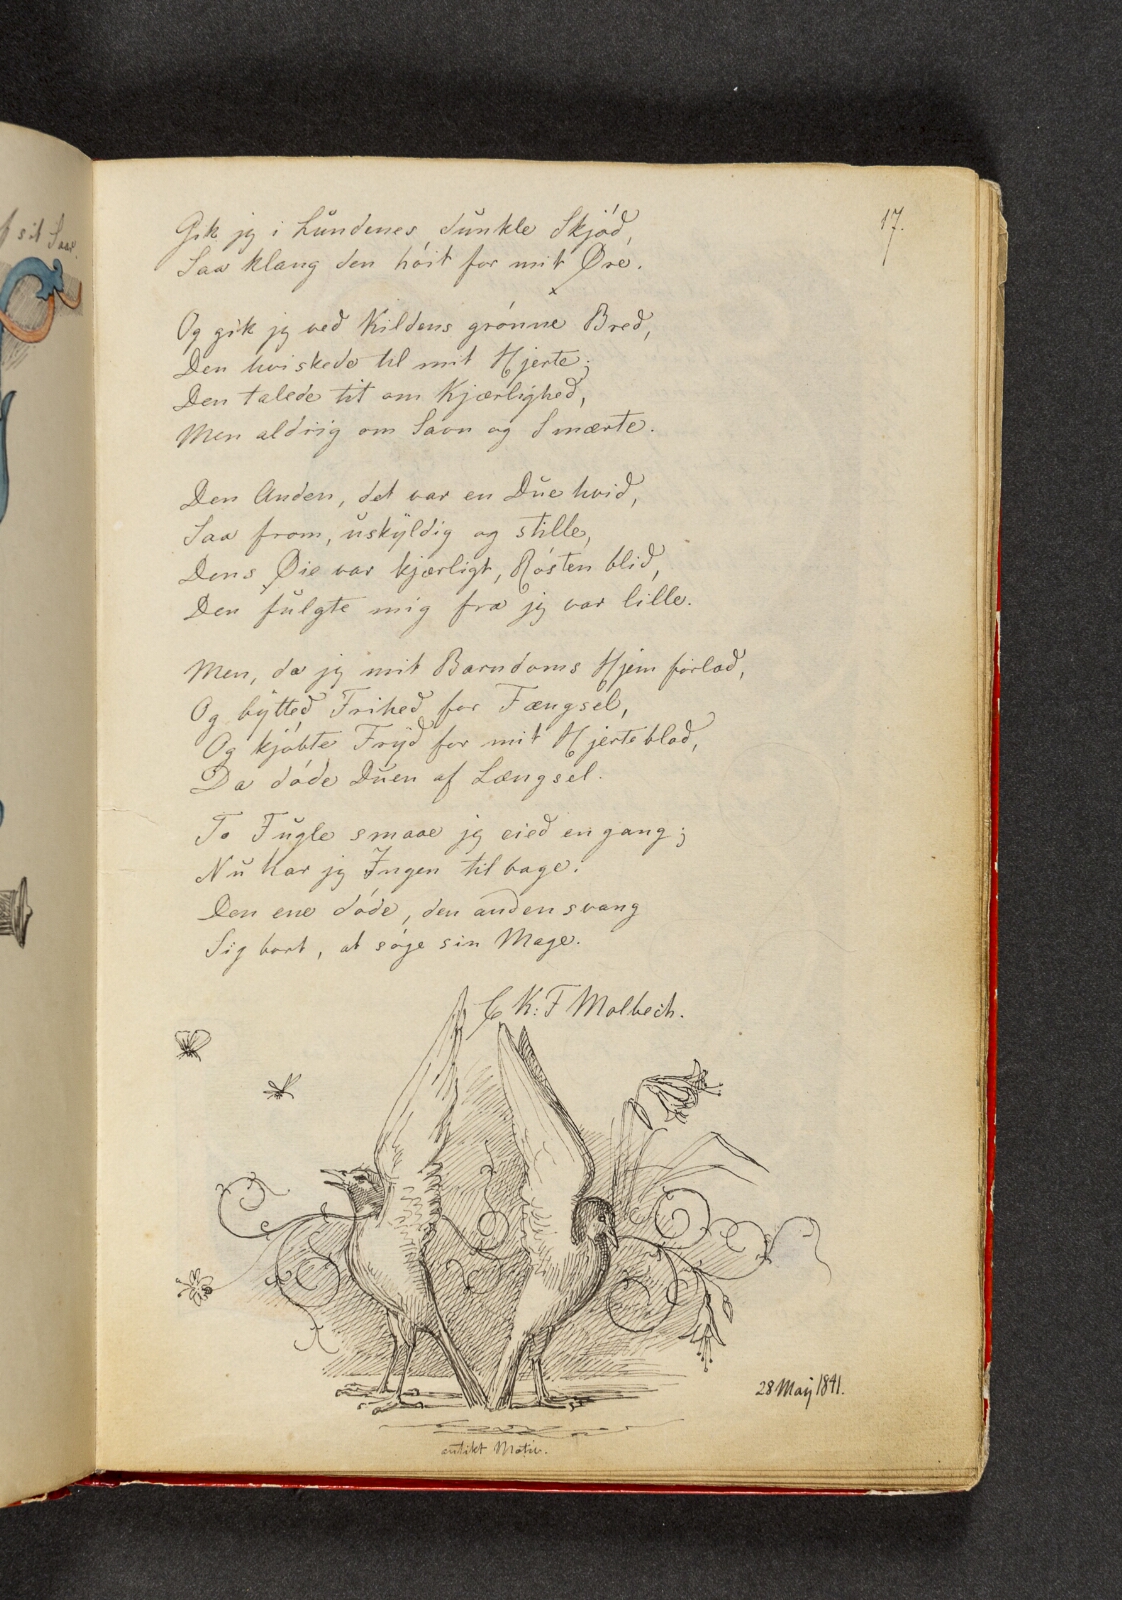 17.
Gik jeg i Lundenes dunkle Skjød,
Saa klang den høit for mit Øre.
Og gik jeg ved Kildens grønne Bred,
Den hviskede til mit Hjerte;
Den talede tit om Kjærlighed,
Men aldrig om Savn og Smærte.
Den Anden, det var en Due hvid,
Saa from, uskyldig og stille,
Dens Øie var kjærligt, Røsten blid,
Den fulgte mig fra jeg var lille.
Men, da jeg mit Barndoms Hjem forlod,
Og bytted Frihed for Fængsel,
Og kjøbte Fryd for mit Hjerteblod,
Da døde Duen af Længsel.
To Fugle smaae jeg eied engang;
Nu har jeg Ingen tilbage:
Den ene døde, den anden svang
Sig bort, at søge sin Mage.
C K: F Molbech.
28 Maj 1841.
antikt Motiv.
sit